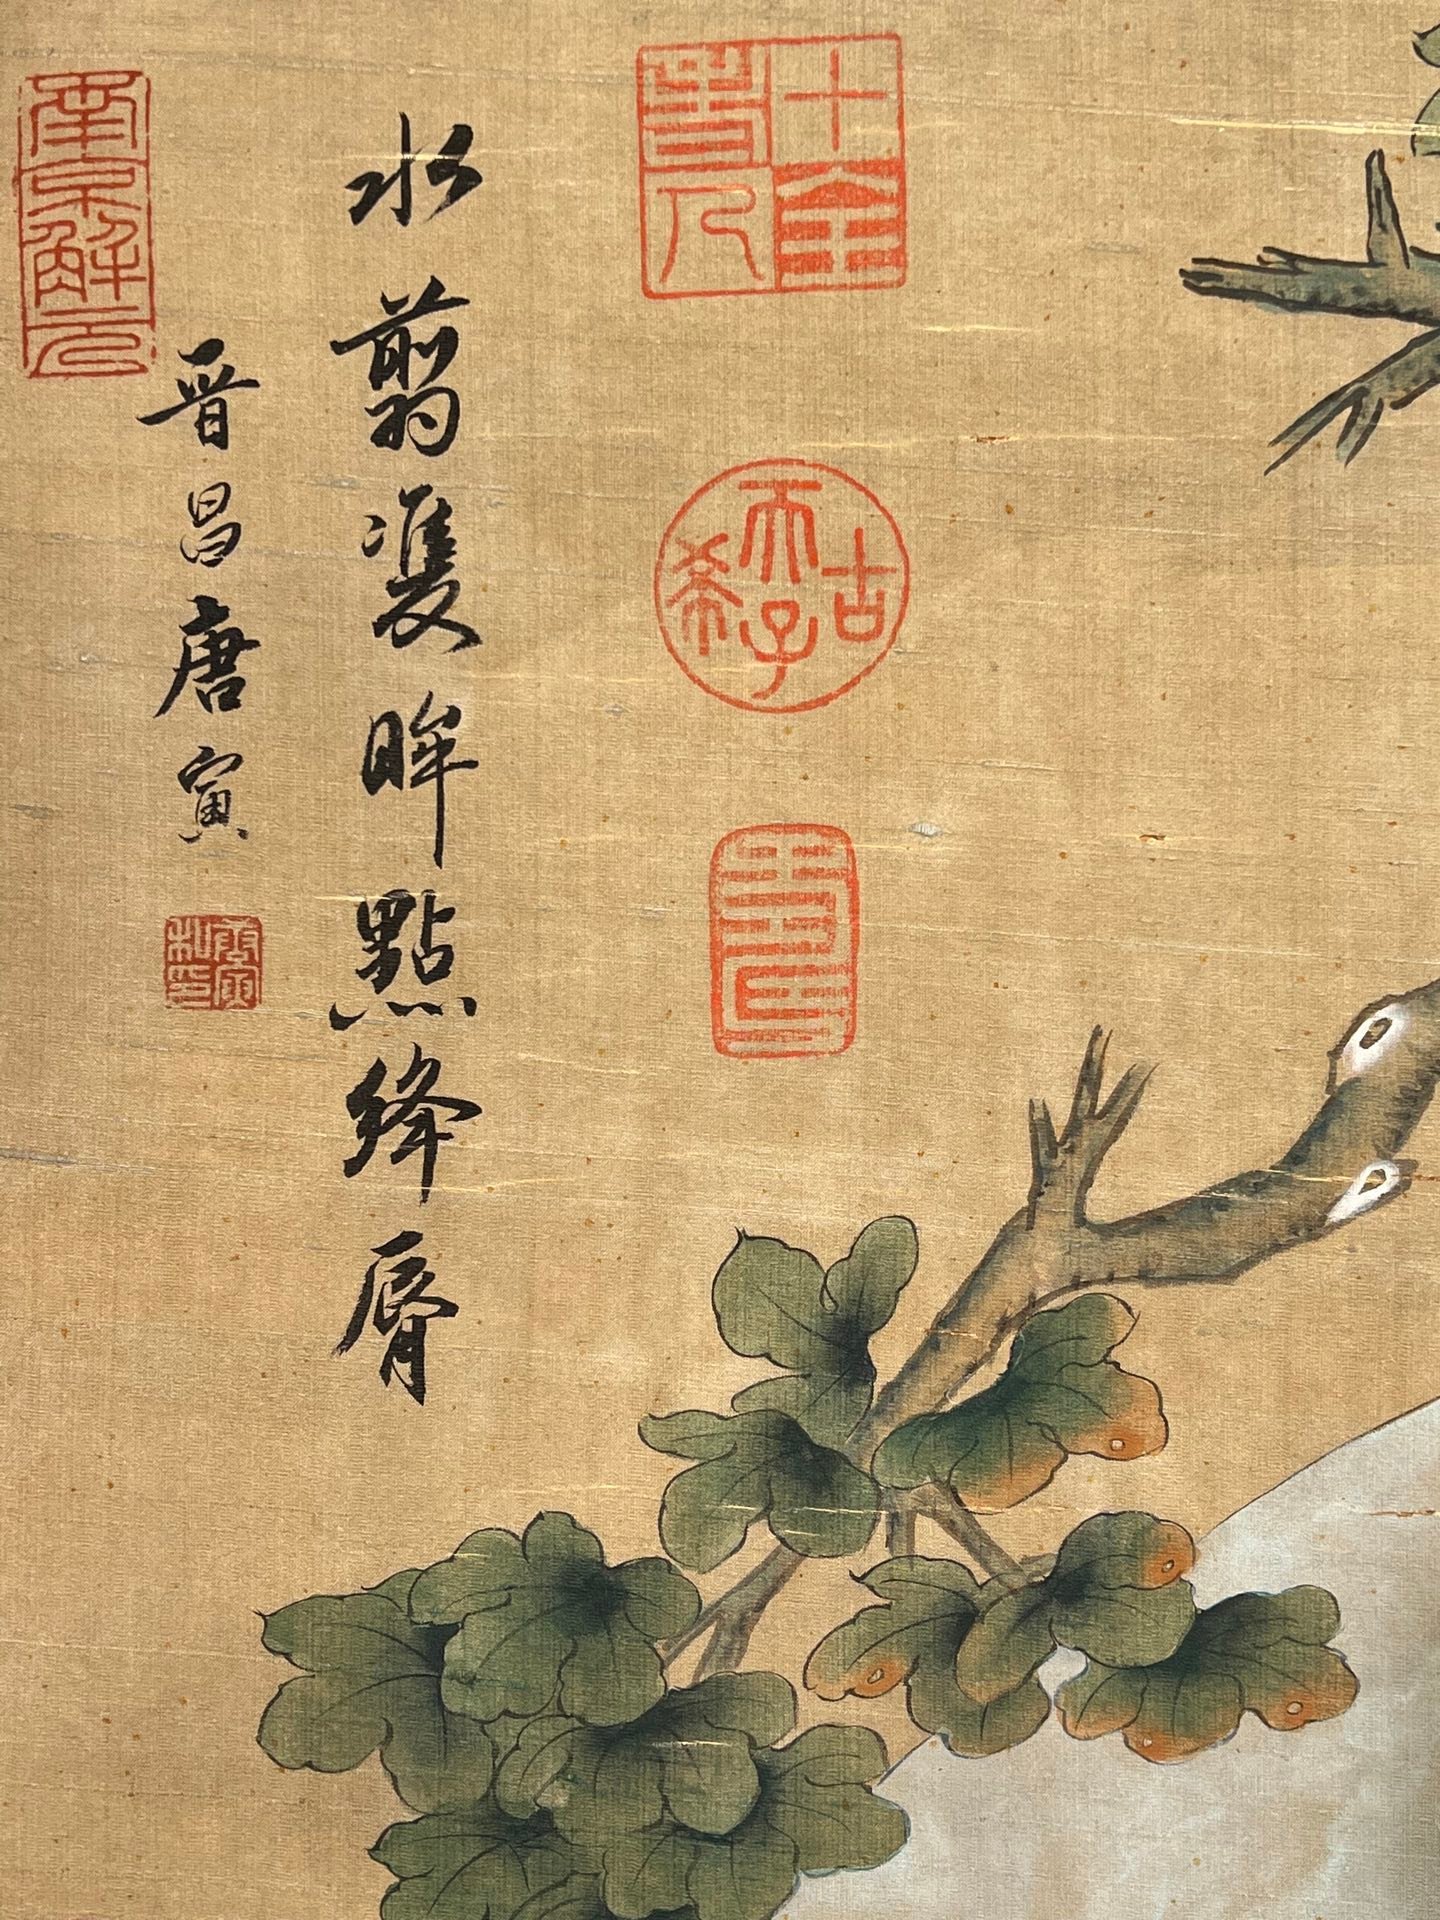 十全老人
古希天子
壽
水翦雙眸點絳脣
晋昌唐寅
唐寅私印
南京解元